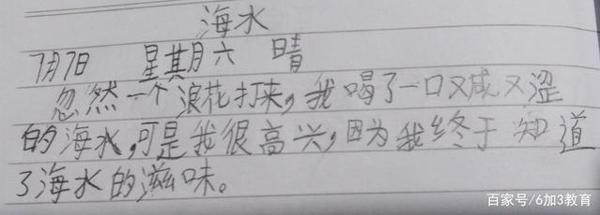 海水
7月7日 星期六 晴
忽然一个浪花打来,我喝了一口又咸又涩
的海水,可是我很高兴,因为我终于知道
了海水的滋味。
百家号/6加3教育